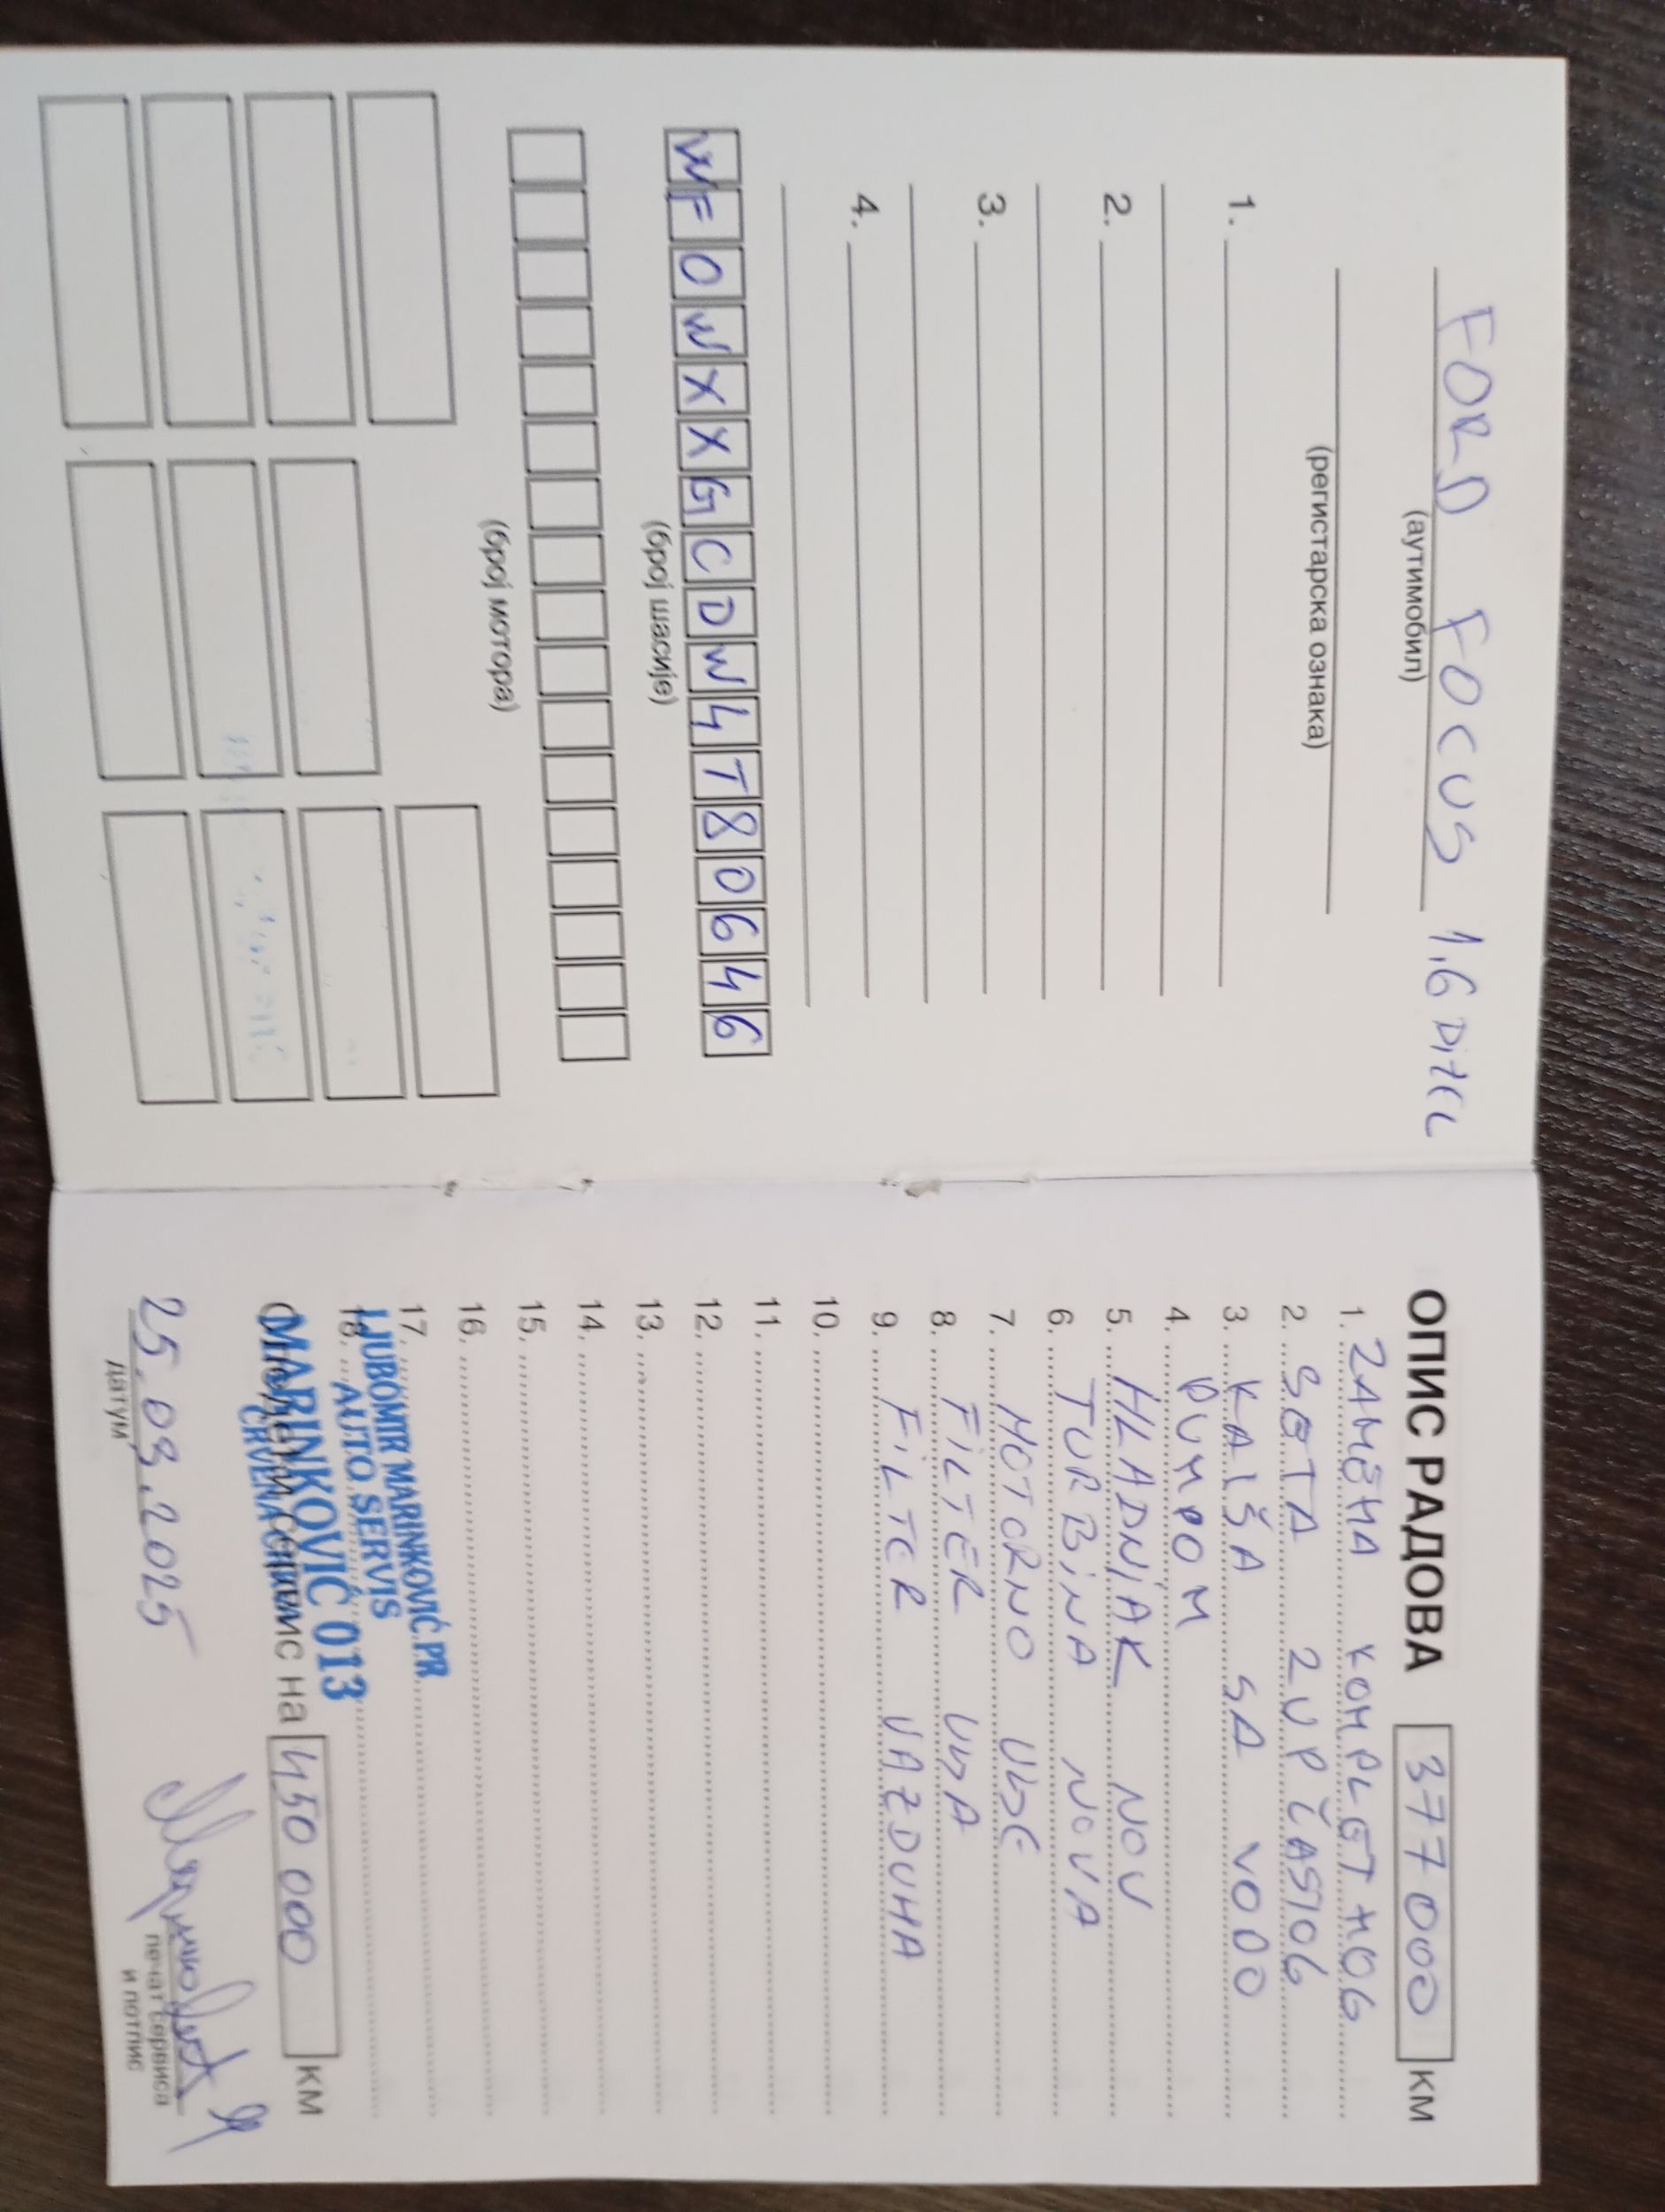 FORD FOCUS 1.6 DITCL
(аутимобил)
(регистарска ознака)
1.
2.
3.
4.
WFOWXXGCDW4T80646
(број шасије)
(број мотора)
ОПИС РАДОВА 377000 км
1. ZAMENA KOMPLETNOG
2. SETA ZUPČASTOG
3. KAIŠA SA VODO
4. PUMPOM
5. HLADNJAK NOV
6. TURBINA NOVA
7. MOTORNO ULJE
8. FILTER ULJA
9. FILTER VAZDUHA
10.
11.
12.
13.
14.
15.
16.
17.
18.
LJUBOMIR MARINKOVIĆ PR
AUTO SERVIS
MARINKOVIĆ 013
CRVENA CRKVA
сервис на 450 000 км
25.03.2025
датум
печат сервиса
и потпис